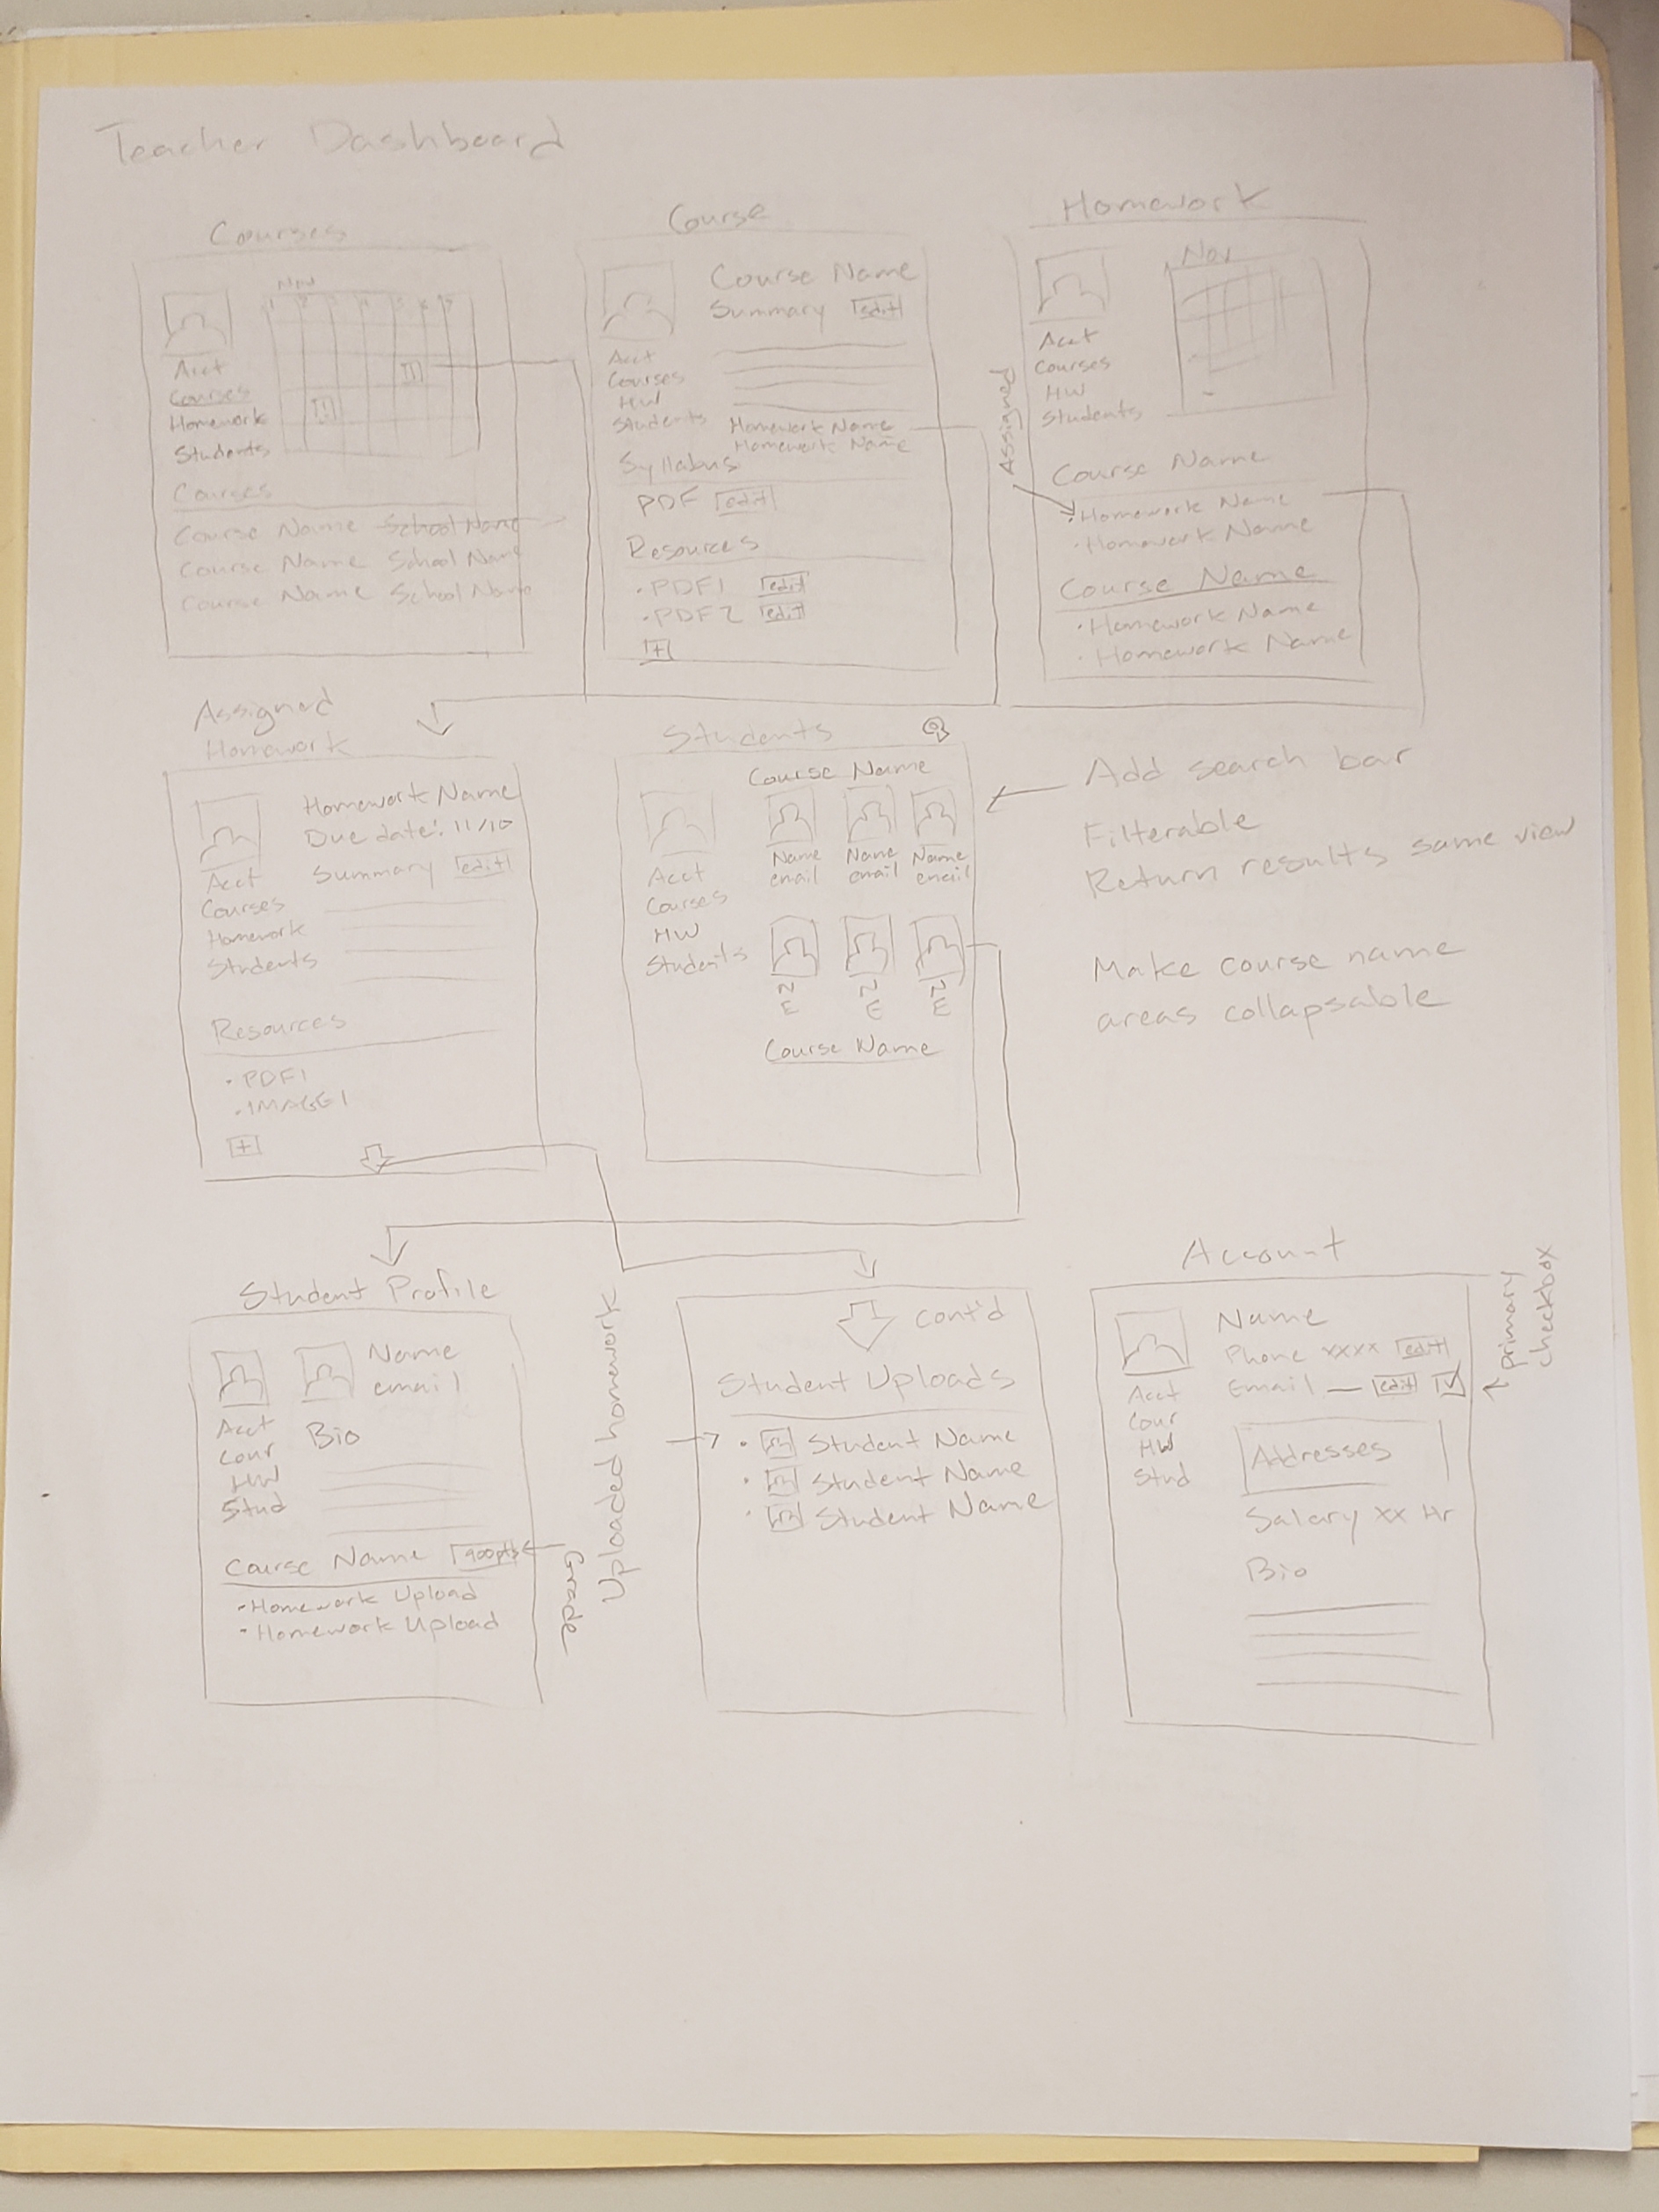 Teacher Dashboard
Courses
Nov
1 2 3 4 5 6 7
Acct
Courses
Homework
Students
Courses
Course Name School Name
Course Name School Name
Course Name School Name
Course
Course Name
Summary edit
Acct
Courses
HW
Students
Homework Name
Homework Name
Syllabus
PDF edit
Resources
• PDF1 edit
• PDF2 edit
+
Homework
Nov
Acct
Courses
HW
Students
Assigned
Course Name
• Homework Name
• Homework Name
Course Name
• Homework Name
• Homework Name
Assigned
Homework
Homework Name
Due date: 11/10
Summary edit
Acct
Courses
Homework
Students
Resources
• PDF1
• IMAGE1
+
Students
Course Name
Name Name Name
email email email
Acct
Courses
HW
Students
N N N
E E E
Course Name
Add search bar
Filterable
Return results same view
Make course name
areas collapsable
Student Profile
Name
email
Acct
Cour
HW
Stud
Bio
Course Name 900pts
Grade
• Homework Upload
• Homework Upload
Uploaded homework
cont'd
Student Uploads
• Student Name
• Student Name
• Student Name
Account
Name
Phone xxxx edit
Email edit
primary
checkbox
Acct
Cour
HW
Stud
Addresses
Salary xx Hr
Bio